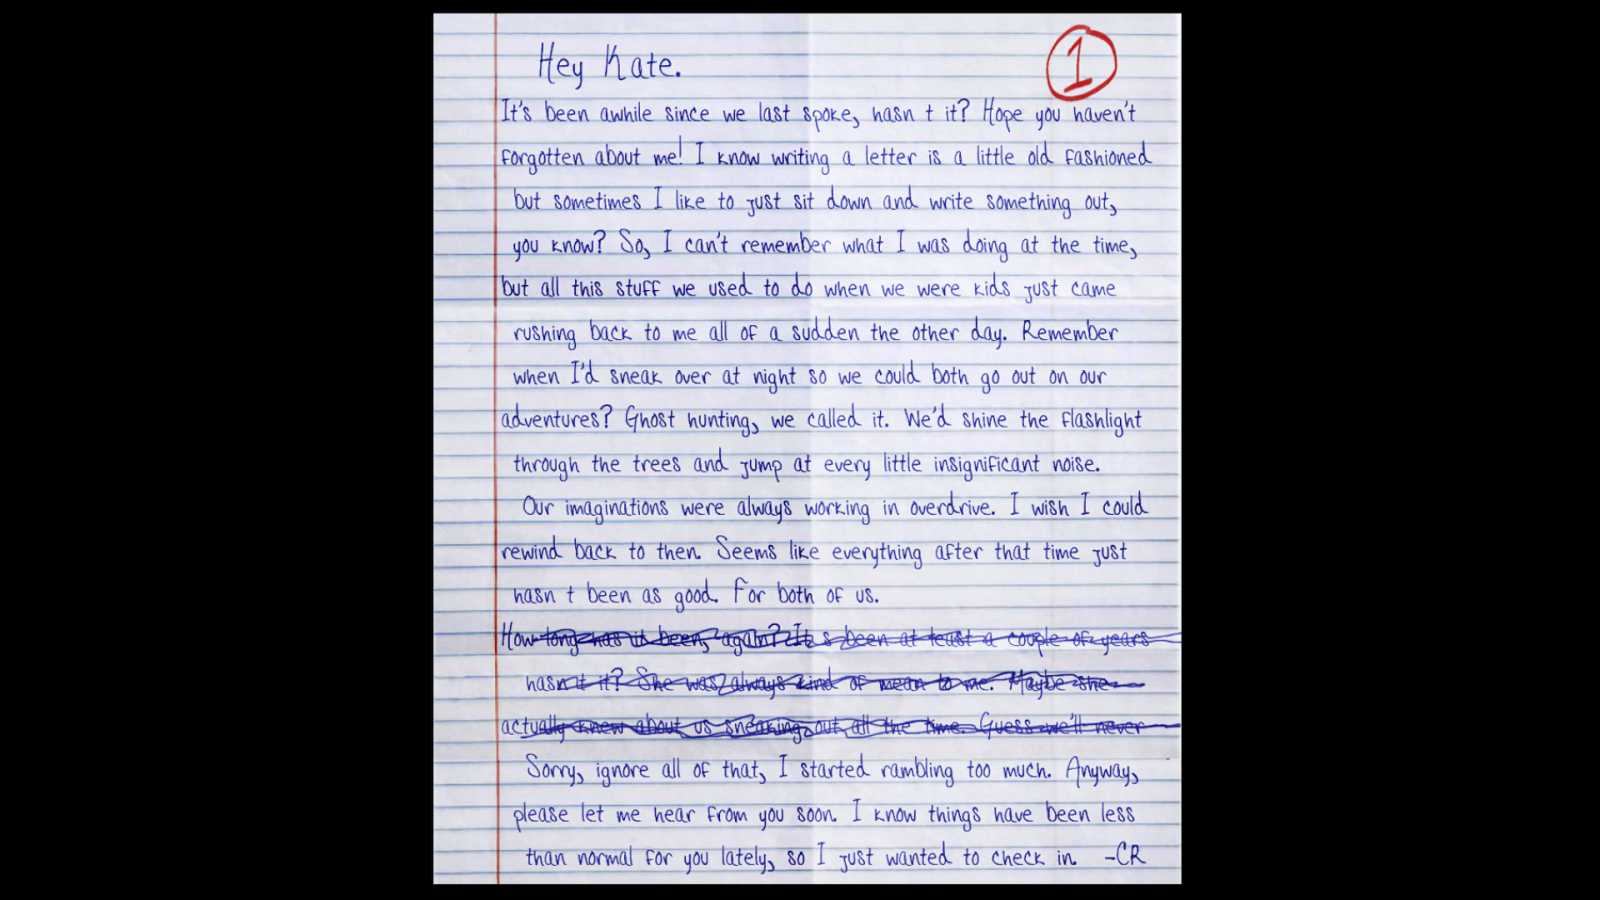 Hey Kate.
1
It's been awhile since we last spoke, hasn t it? Hope you haven't
forgotten about me! I know writing a letter is a little old fashioned
but sometimes I like to just sit down and write something out,
you know? So, I can't remember what I was doing at the time,
but all this stuff we used to do when we were kids just came
rushing back to me all of a sudden the other day. Remember
when I'd sneak over at night so we could both go out on our
adventures? Ghost hunting, we called it. We'd shine the flashlight
through the trees and jump at every little insignificant noise.
Our imaginations were always working in overdrive. I wish I could
rewind back to then. Seems like everything after that time just
hasn t been as good. For both of us.
How long has it been, again? It s been at least a couple of years
hasn t it? She was always kind of mean to me. Maybe she
actually knew about us sneaking out all the time. Guess we'll never
Sorry, ignore all of that, I started rambling too much. Anyway,
please let me hear from you soon. I know things have been less
than normal for you lately, so I just wanted to check in. -CR